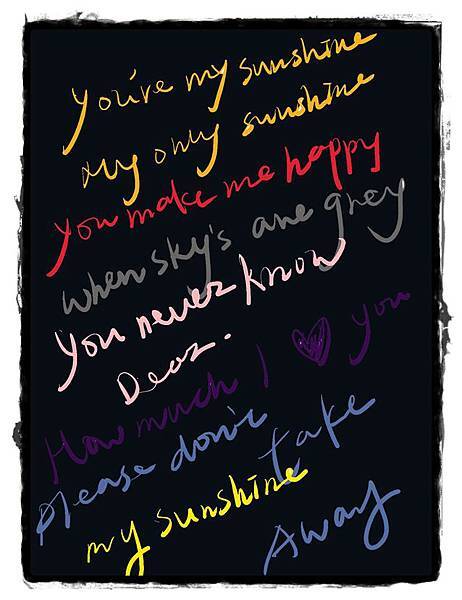 You're my sunshine
My only sunshine
You make me happy
when sky's are grey
You never know
Dear.
How much I ♥ you
please don't take
my sunshine Away